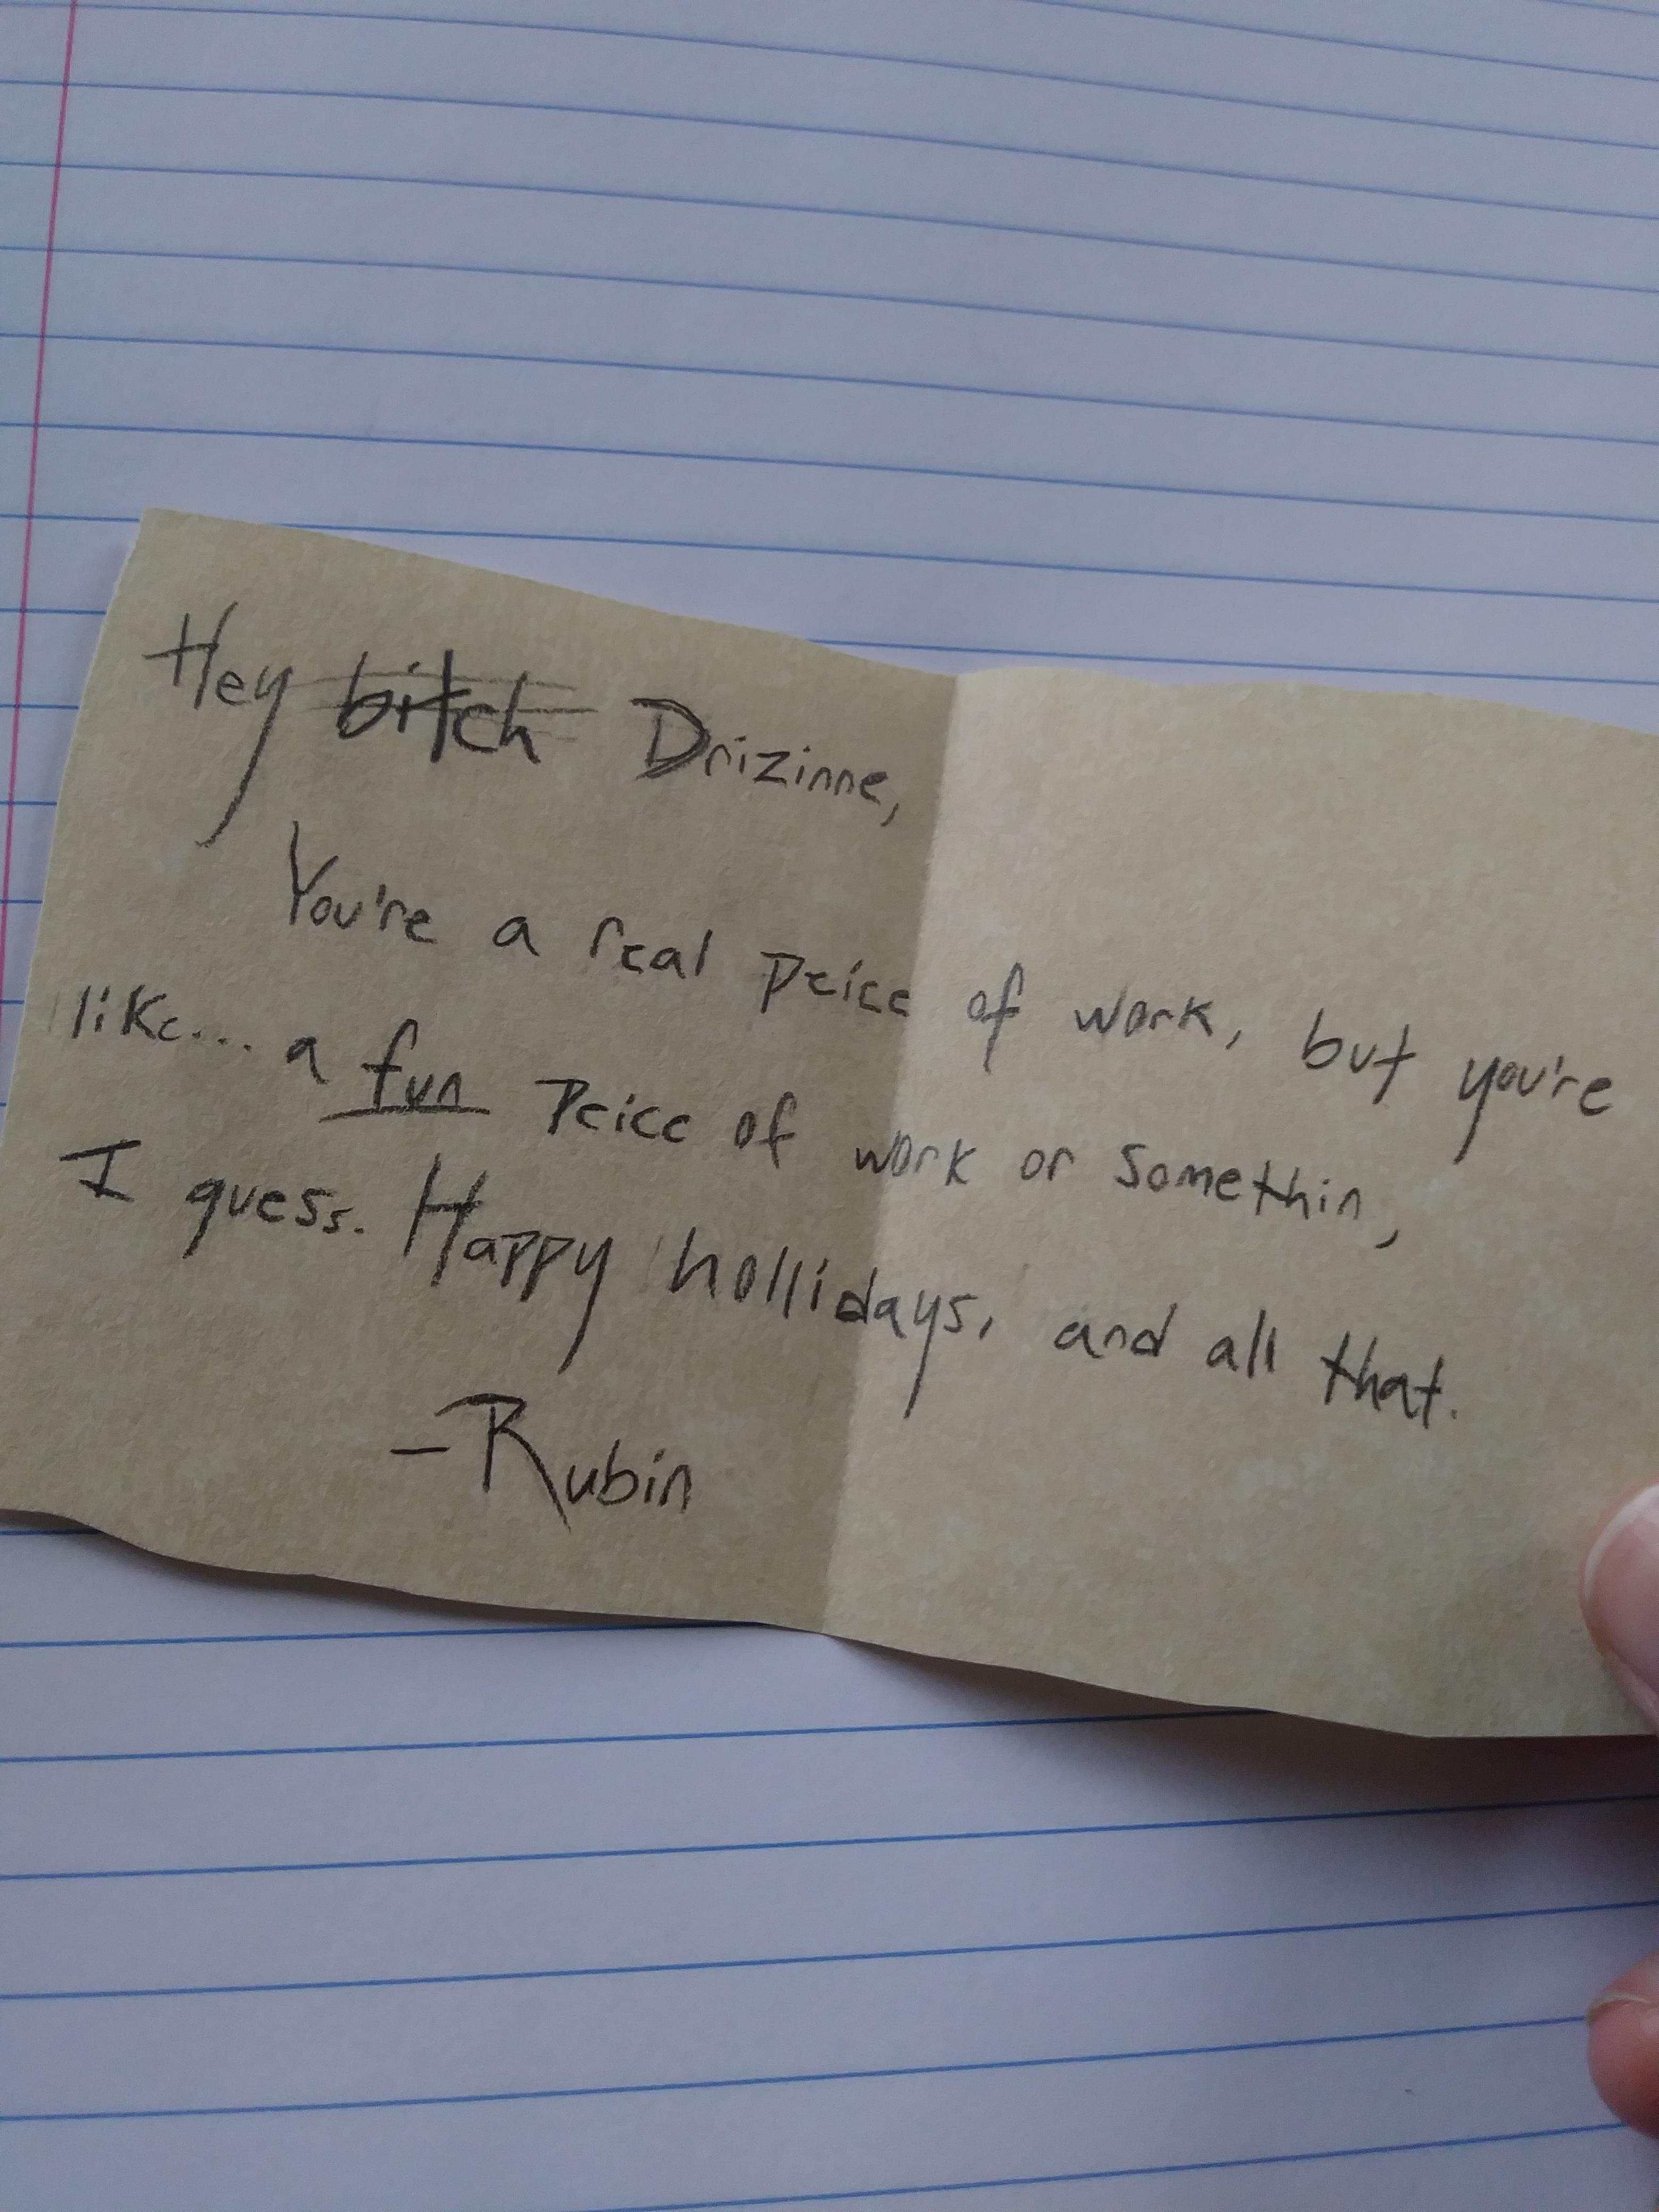 Hey bitch Drizinne,
You're a real peice of work, but you're
like... a fun peice of work or somethin,
I guess. Happy hollidays, and all that.
-Rubin